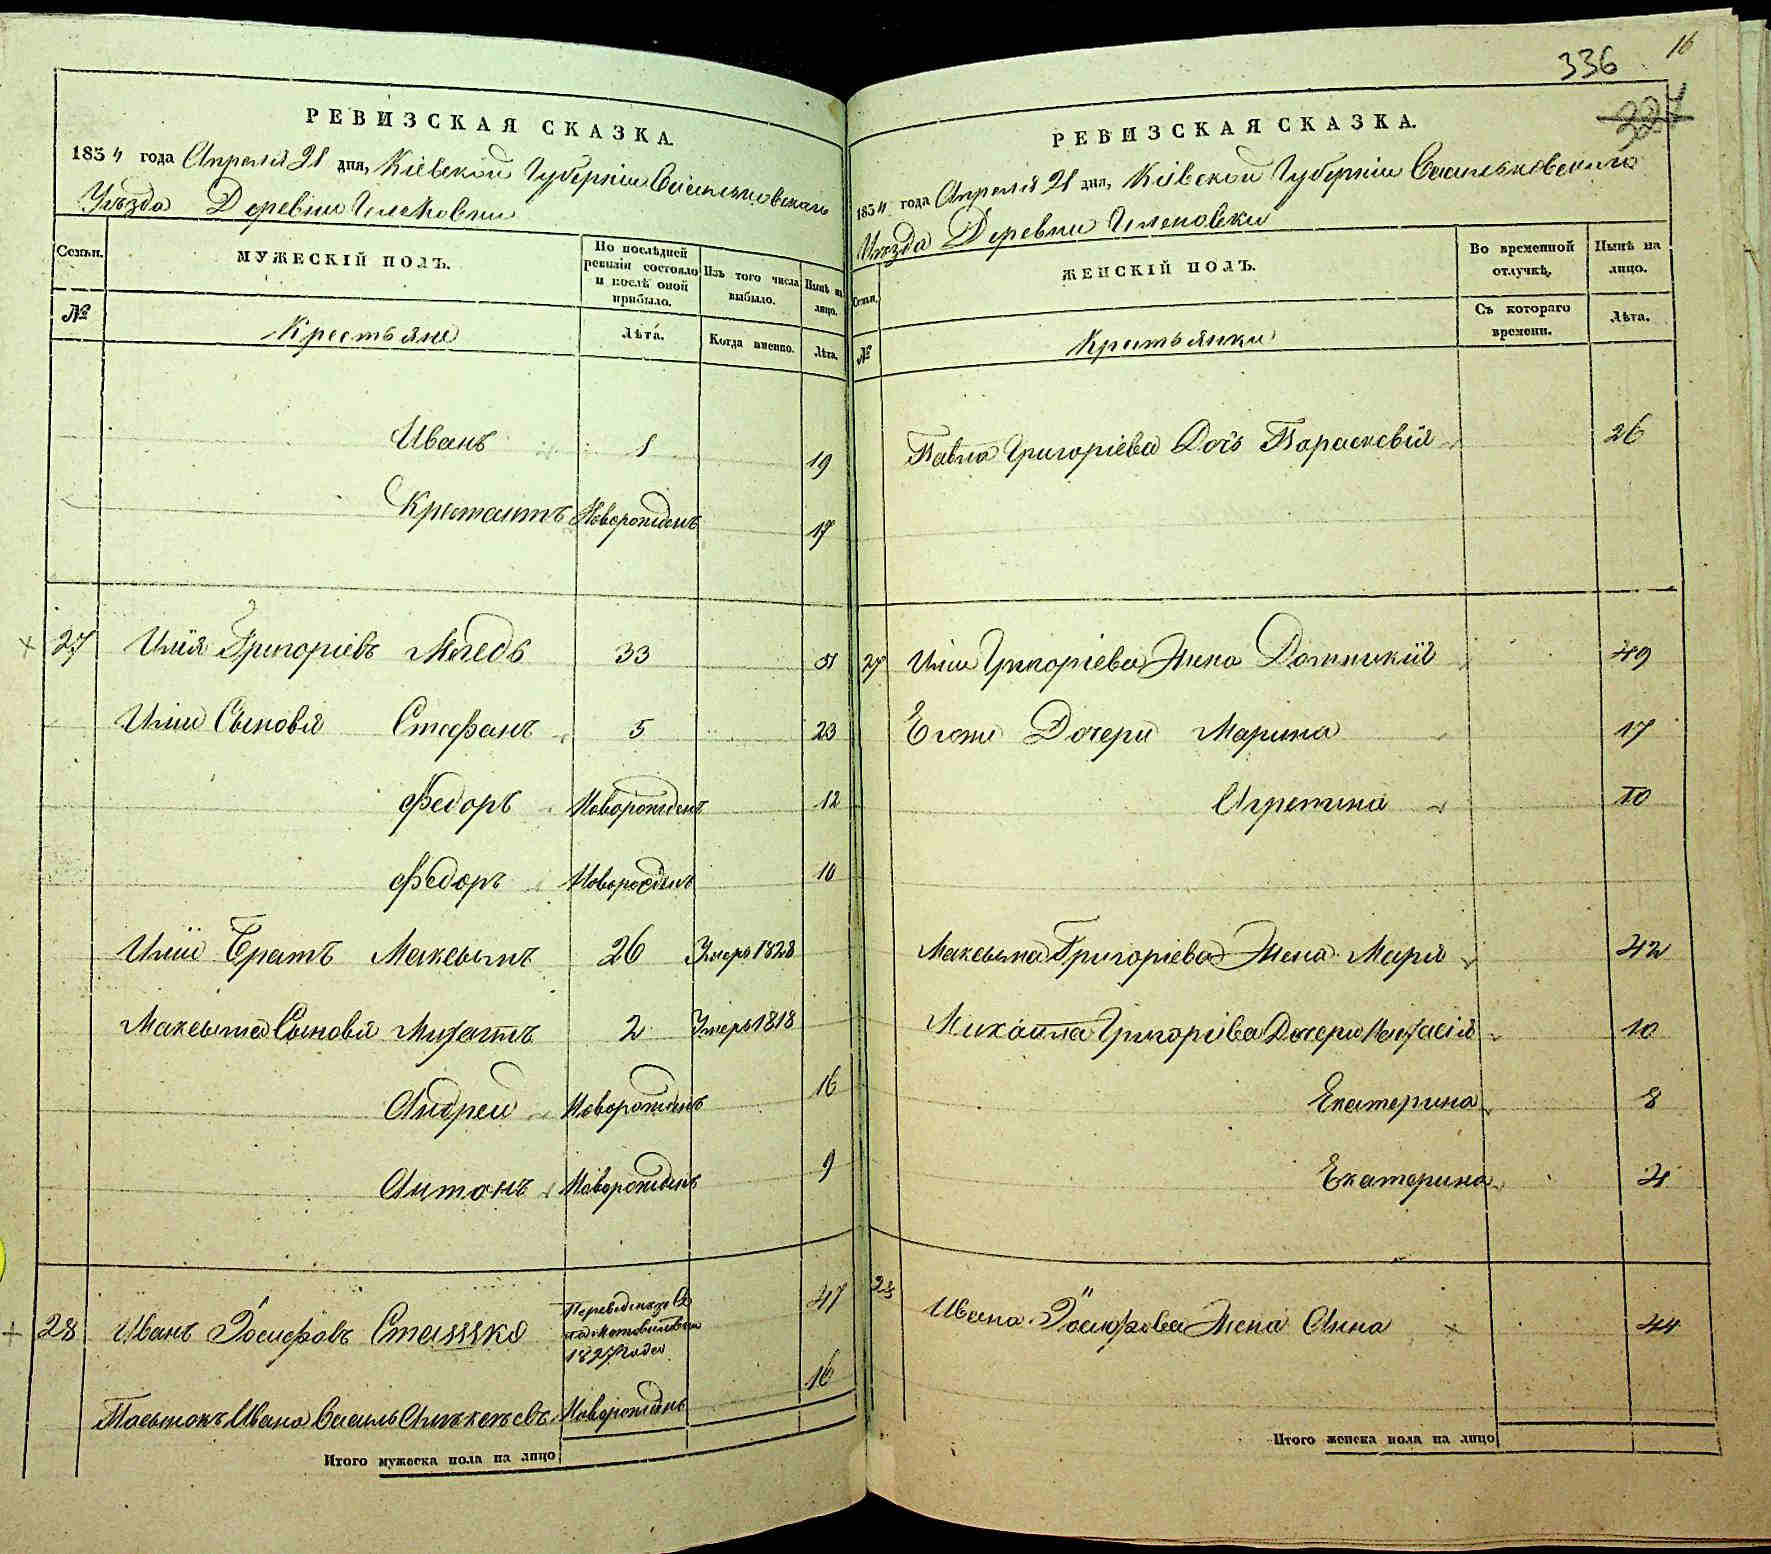 РЕВИЗСКАЯ СКАЗКА.
1834 года Апреля 21 дня, Кіевской Губерніи Васильковскаго
Уѣзда Деревни
Семьи.
МУЖЕСКІЙ ПОЛЪ.
По послѣдней ревизіи состояло и послѣ оной прибыло.
Изъ того числа выбыло.
Нынѣ на лицо.
№
Крестьяне
Лѣта.
Когда именно.
Лѣта.
Иванъ 1 19
Новорожденъ 17
27 Илія Григоріевъ 33 51
Иліи Сыновья Стефанъ 5 23
Федоръ Новорожденъ 12
Федоръ Новорожденъ 10
Иліи Братъ Максымъ 26 Умеръ 1828
Максыма Сыновья 2 Умеръ 1818
Андрей Новорожденъ 16
Антонъ Новорожденъ 9
28 Иванъ 47
1827 года
Ивана Василь Новорожденъ 16
Итого мужеска пола на лицо
336
16
РЕВИЗСКАЯ СКАЗКА.
1834 года Апреля 21 дня, Кіевской Губерніи Васильковскаго
Уѣзда Деревни
Семьи.
ЖЕНСКІЙ ПОЛЪ.
Во временной отлучкѣ.
Нынѣ на лицо.
№
Крестьянки
Съ котораго времени.
Лѣта.
Павла Григоріева Дочь Параскевія 26
27 Иліи Григоріева Жена 49
Его же Дочери Марина 17
Агрепина 10
Максыма Григоріева Жена Марія 42
Михаила Григоріева Дочери 10
Екатерина 8
Екатерина 4
28 Ивана Жена Анна 44
Итого женска пола на лицо